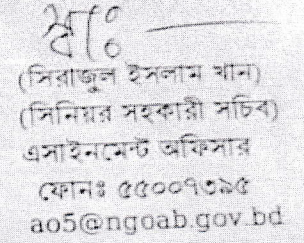 স্বাঃ
(সিরাজুল ইসলাম খান)
(সিনিয়র সহকারী সচিব)
এসাইনমেন্ট অফিসার
ফোনঃ ৫৫০০৭৩৯৫
ao5@ngoab.gov.bd